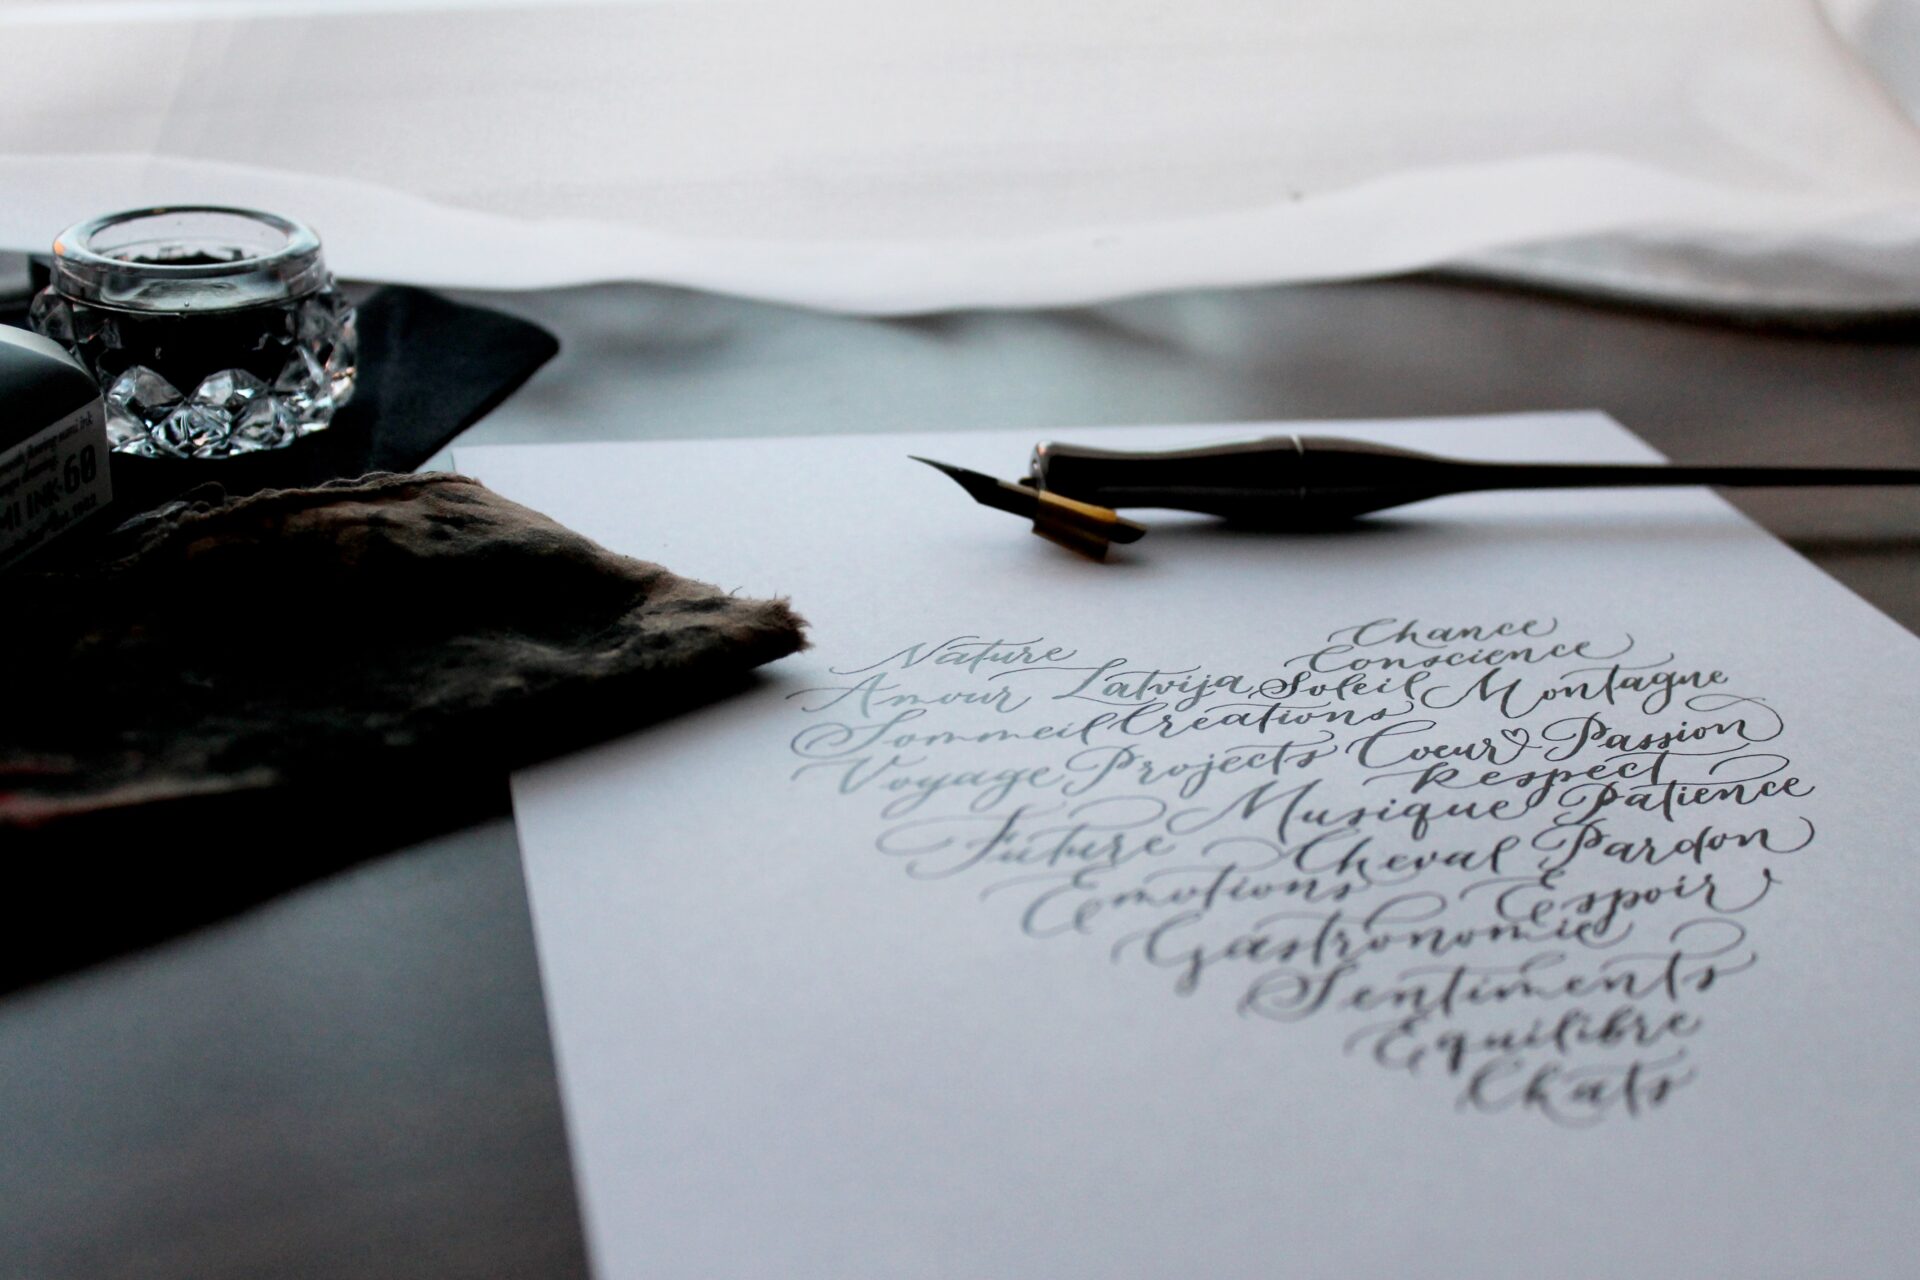 Chance
Nature Conscience
Amour Latvija Soleil Montagne
Sommeil Créations Coeur Passion
Voyage Projects Respect
Future Musique Patience
Emotions Cheval Pardon
Gastronomie Espoir
Sentiments
Equilibre
Chats
sumi ink
MI INK 60